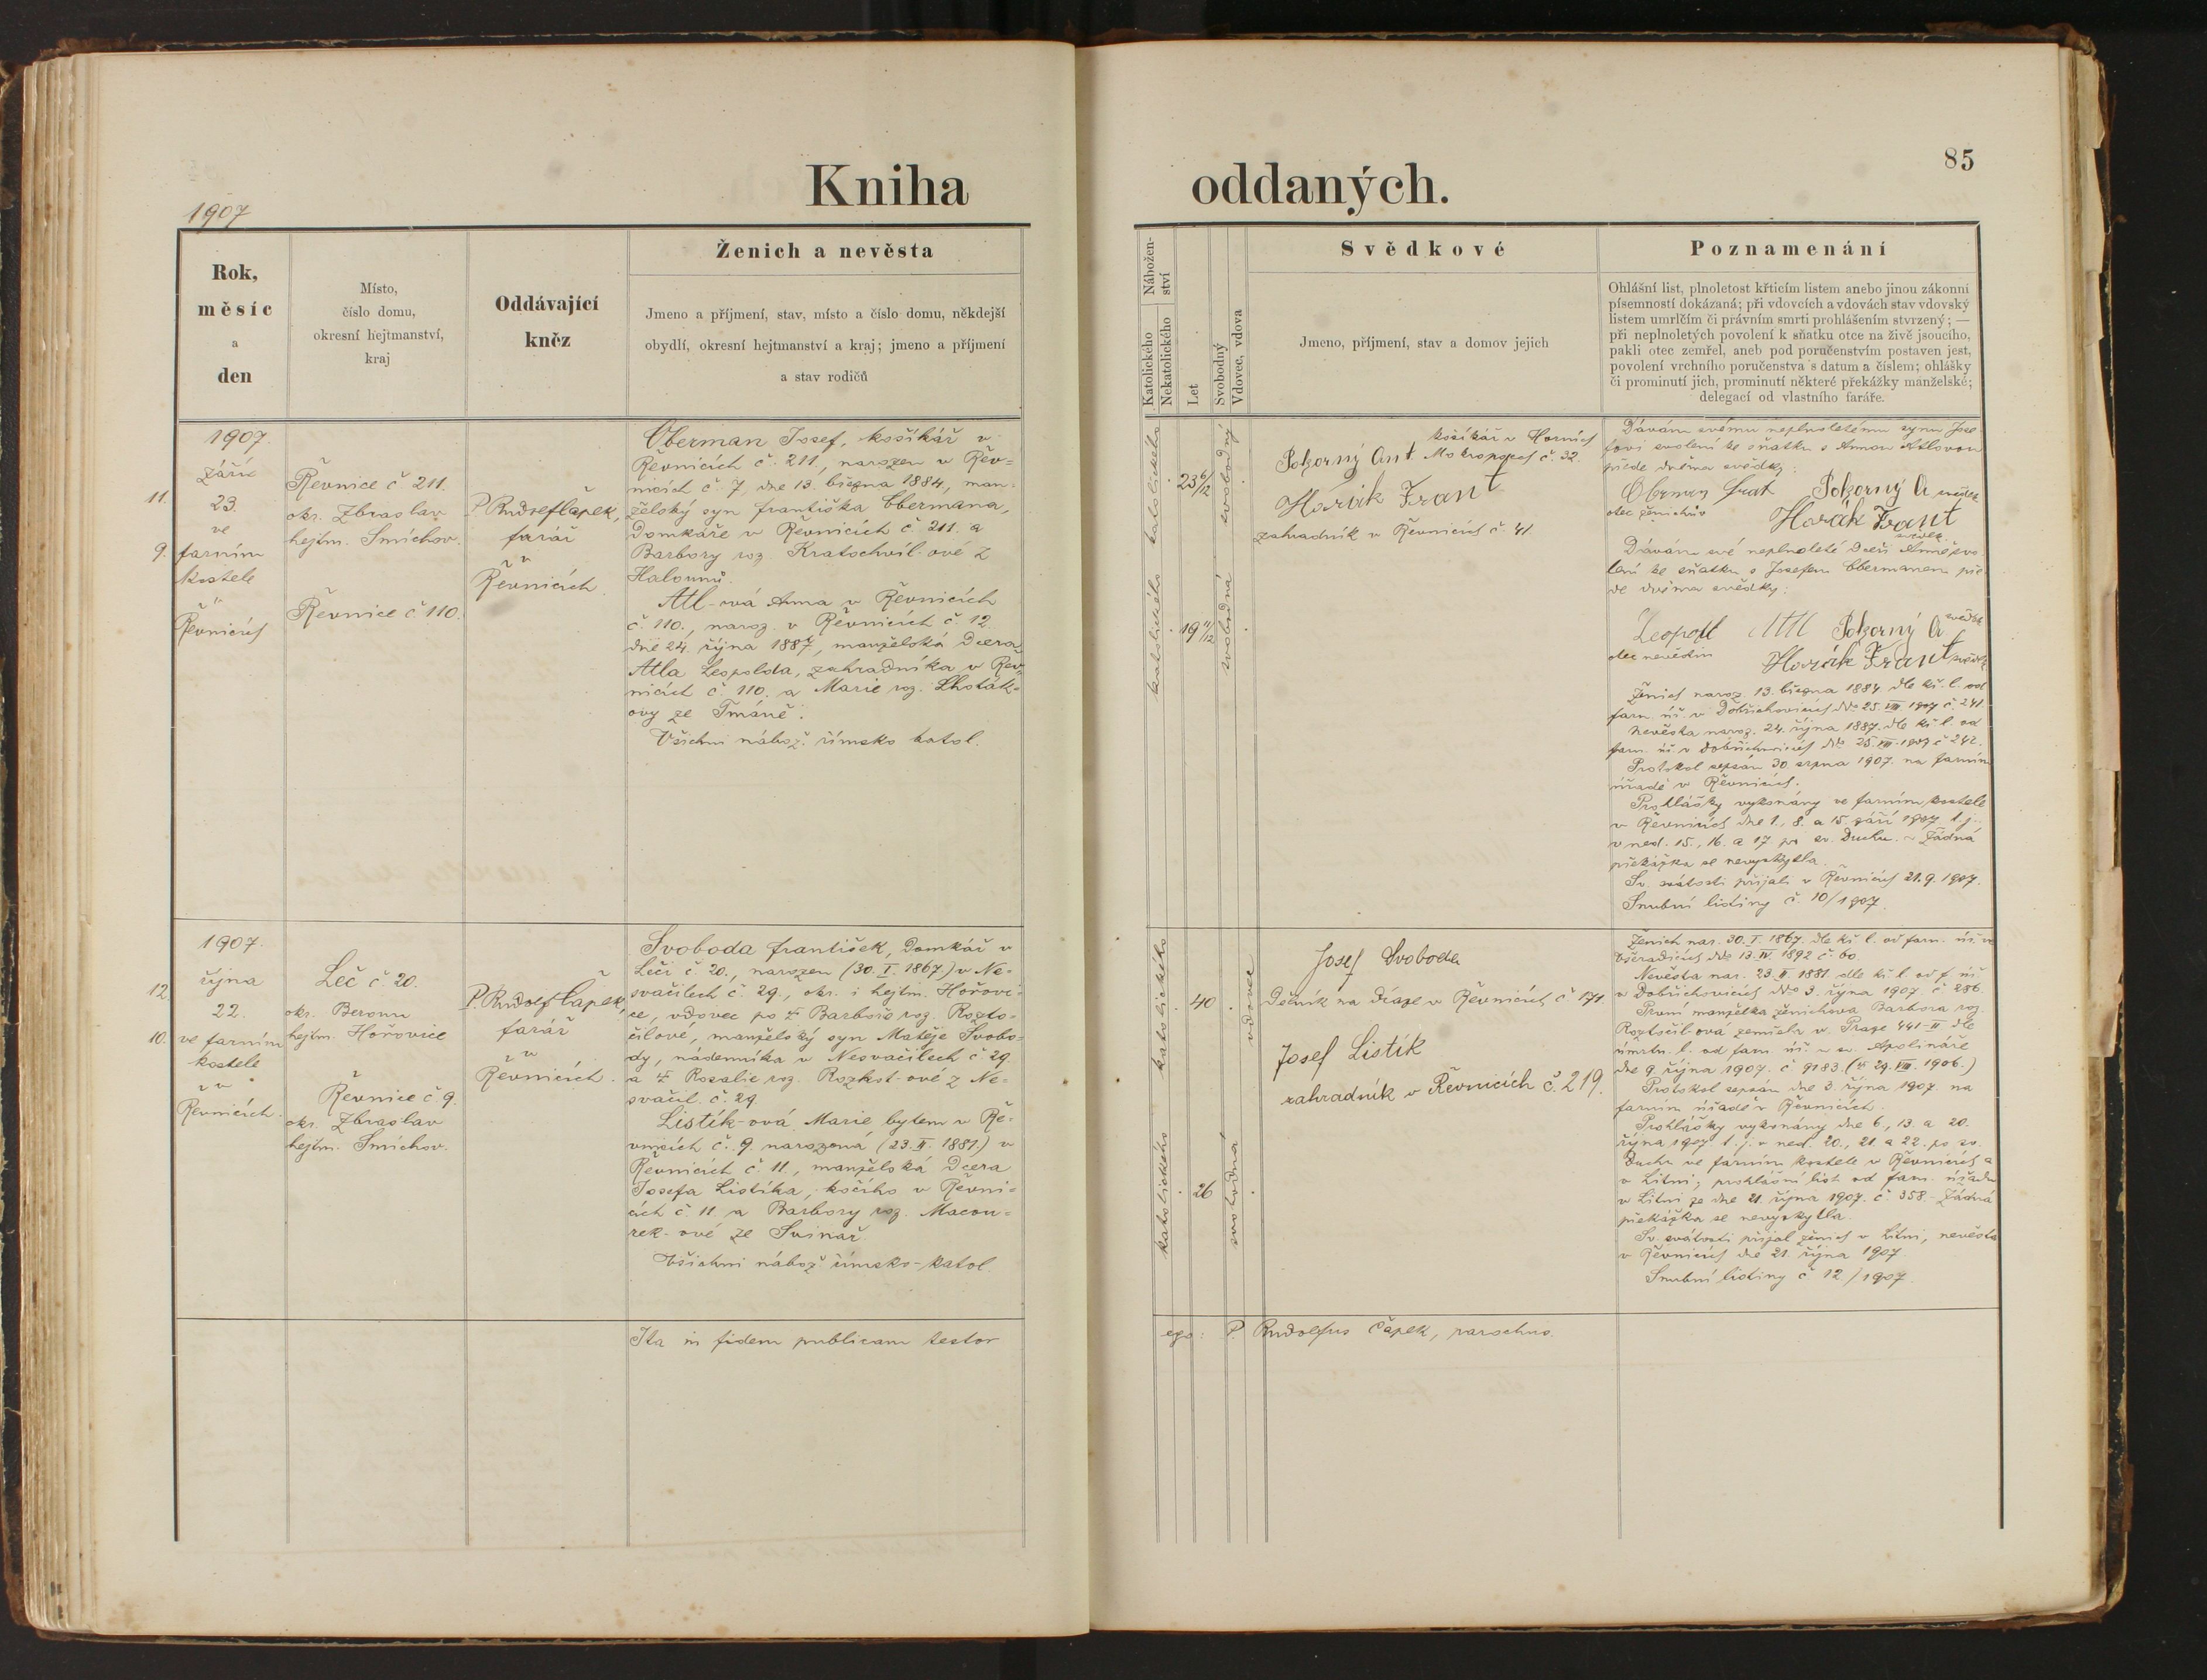 Kniha
oddaných.
85
1907
Rok,
měsíc
a
den
Místo,
číslo domu,
okresní hejtmanství,
kraj
Oddávající
kněz
Ženich a nevěsta
Jmeno a příjmení, stav, místo a číslo domu, někdejší
obydlí, okresní hejtmanství a kraj; jmeno a příjmení
a stav rodičů
Nábožen-
ství
Katolického
Nekatolického
Let
Svobodný
Vdovec, vdova
Svědkové
Jmeno, příjmení, stav a domov jejich
Poznamenání
Ohlášní list, plnoletost křticím listem anebo jinou zákonní
písemností dokázaná; při vdovcích a vdovách stav vdovský
listem umrlčím či právním smrti prohlášením stvrzený; —
při neplnoletých povolení k sňatku otce na živě jsoucího,
pakli otec zemřel, aneb pod poručenstvím postaven jest,
povolení vrchního poručenstva s datum a číslem; ohlášky
či prominutí jich, prominutí některé překážky manželské;
delegací od vlastního faráře.
11.
9.
1907.
Září
23.
ve
farním
kostele
v
Řevnicích
Řevnice č 211.
okr. Zbraslav
hejtm. Smíchov.
Řevnice č 110.
P. Rudolf Čapek,
farář
v
Řevnicích.
Oberman Josef, košíkář v
Řevnicích č. 211., narozen v Řev-
nicích č. 7, dne 13. března 1884, man-
želský syn Františka Obermana,
Domkáře v Řevnicích č 211. a
Barbory roz. Kratochvíl-ové z
Halounů.
Atl-ová Anna v Řevnicích
č. 110., naroz. v Řevnicích č. 12.
dne 24. října 1887, manželská dcera
Atla Leopolda, zahradníka v Řev-
nicích č. 110. a Marie roz. Lhoták-
ovy ze Tmáně.
Všichni nábož. římsko katol.
katolického
katolického
23 6/12
19 11/12
svobodný
svobodná
košíkář v Horních
Pokorný Ant. Mokropsech č. 32.
Horák Frant
zahradník v Řevnicích č. 41
Dávám svému neplnoletému synu Jose-
fovi svolení ke sňatku s Annou Atlovou
přede dvěma svědky:
Frant Pokorný A svědek
otec ženichův
Horák Frant
svědek
Dávám své neplnoleté dceři Anně svo-
lení ke sňatku s Josefem Obermanem pře-
de dvěma svědky:
Leopold Atl Pokorný A. svědek
otec nevěstin Horák Frant svědek
Ženich naroz. 13. března 1884. dle kř. l. od
farn. úř. v Dobřichovicích ddo 25. VIII 1907 č. 241.
Nevěsta naroz. 24. října 1887. dle kř. l. od
farn. úř. v Dobřichovicích ddo 25. VIII. 1907 č 242.
Protokol sepsán 30 srpna 1907. na farním
úřadě v Řevnicích.
Prohlášky vykonány ve farním kostele
v Řevnicích dne 1., 8. a 15. září 1907 t. j.
v ned. 15., 16. a 17 po sv. Duchu. ~ Žádná
překážka se nevyskytla.
Sv. svátosti přijali v Řevnicích 21. 9. 1907.
Snubní listiny č. 10/1907.
12.
10.
1907.
října
22.
ve farním
kostele
v
Řevnicích.
Leč č. 20.
okr. Beroun
hejtm. Hořovice
Řevnice č. 9.
okr. Zbraslav
hejtm. Smíchov.
P. Rudolf Čapek,
farář
v
Řevnicích.
Svoboda František, domkář v
Leči č. 20., narozen (30. I. 1867) v Ne-
svačilech č. 29., okr. i hejtm. Hořovi-
ce, vdovec po † Barboře roz. Rozto-
čilové, manželský syn Matěje Svobo-
dy, nádenníka v Nesvačilech č 29.
a † Rosalie roz. -ové z Ne-
svačil č. 29
Listík-ová Marie, bytem v Ře-
vnicích č. 9. narozená (23. II. 1881.) v
Řevnicích č. 11., manželská dcera
Josefa Listíka, kočího v Řevni-
cích č. 11 a Barbory roz. Macou-
rek-ové ze Svinař.
Všichni nábož. římsko-katol.
katolického
katolického
40
26
vdovec
svobodná
Josef Svoboda
Dělník na dráze v Řevnicích č. 171.
Josef Listík
zahradník v Řevnicích č. 219.
Ženich nar. 30. I. 1867. dle kř. l. od farn. úř. ve
Všeradicích ddo 13. IV. 1892 č. 60.
Nevěsta nar. 23. II. 1881. dle kř. l. od f. úř.
v Dobřichovicích ddo 3. října 1907. č. 286.
První manželka ženichova Barbora roz.
Roztočil-ová zemřela v Praze 441-II dle
úmrtn. l. od farn. úř. u sv. Apolináře
dne 9. října 1907. č. 9183. († 29. VIII. 1906.)
Protokol sepsán dne 3. října 1907. na
farním úřadě v Řevnicích.
Prohlášky vykonány dne 6., 13. a 20.
října 1907 t. j. v ned. 20., 21. a 22. po sv.
Duchu ve farním kostele v Řevnicích a
v Litni; prohlášní list od farn. úřadu
v Litni ze dne 21. října 1907. č. 358. - Žádná
překážka se nevyskytla.
Sv. svátosti přijal ženich v Litni, nevěsta
v Řevnicích dne 21. října 1907.
Snubní listiny č. 12/1907.
Ita in fidem publicam testor
ego: P. Rudolfus Čapek, parochus.